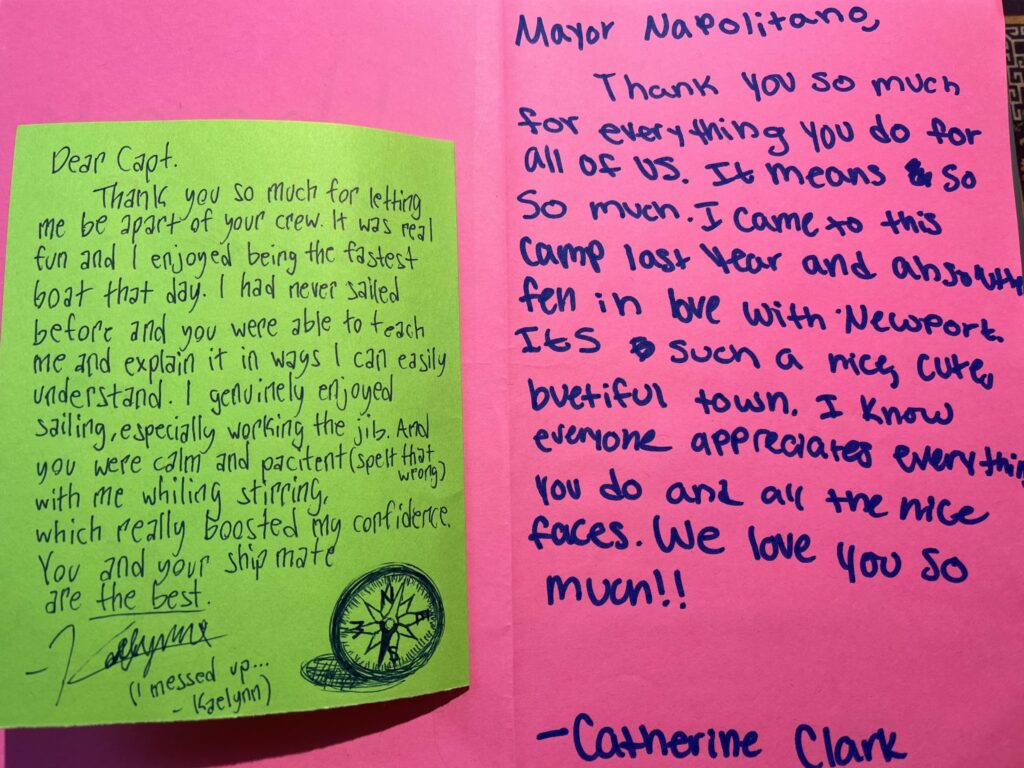 Dear Capt.
Thank you so much for letting
me be apart of your crew. It was real
fun and I enjoyed being the fastest
boat that day. I had never sailed
before and you were able to teach
me and explain it in ways I can easily
understand. I genuinely enjoyed
sailing, especially working the jib. And
you were calm and pacitent (spelt that
wrong)
with me whiling stirring,
which really boosted my confidence.
You and your ship mate
are the best.
- Kaelynn
(I messed up...
- Kaelynn)
N
E
S
W
Mayor Napolitano,
Thank you so much
for everything you do for
all of us. It means so
so much. I came to this
camp last year and absolutely
fell in love with Newport.
Its such a nice, cute,
buetiful town. I know
everyone appreciates everything
you do and all the nice
faces. We love you so
much!!
- Catherine Clark